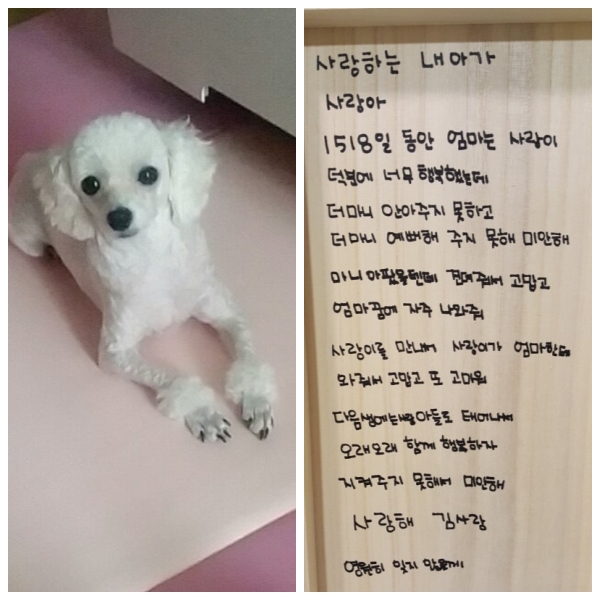 사랑하는 내아가
사랑아
1518일 동안 엄마는 사랑이
덕분에 너무 행복했는데
더마니 안아주지 못하고
더마니 예뻐해 주지 못해 미안해
마니 아팠을텐데 견뎌줘서 고맙고
엄마꿈에 자주 나와줘
사랑이를 만나서 사랑이가 엄마한테
와줘서 고맙고 또 고마워
다음생에는 아들로 태어나서
오래오래 함께 행복하자
지켜주지 못해서 미안해
사랑해 김사랑
영원히 잊지 않을게